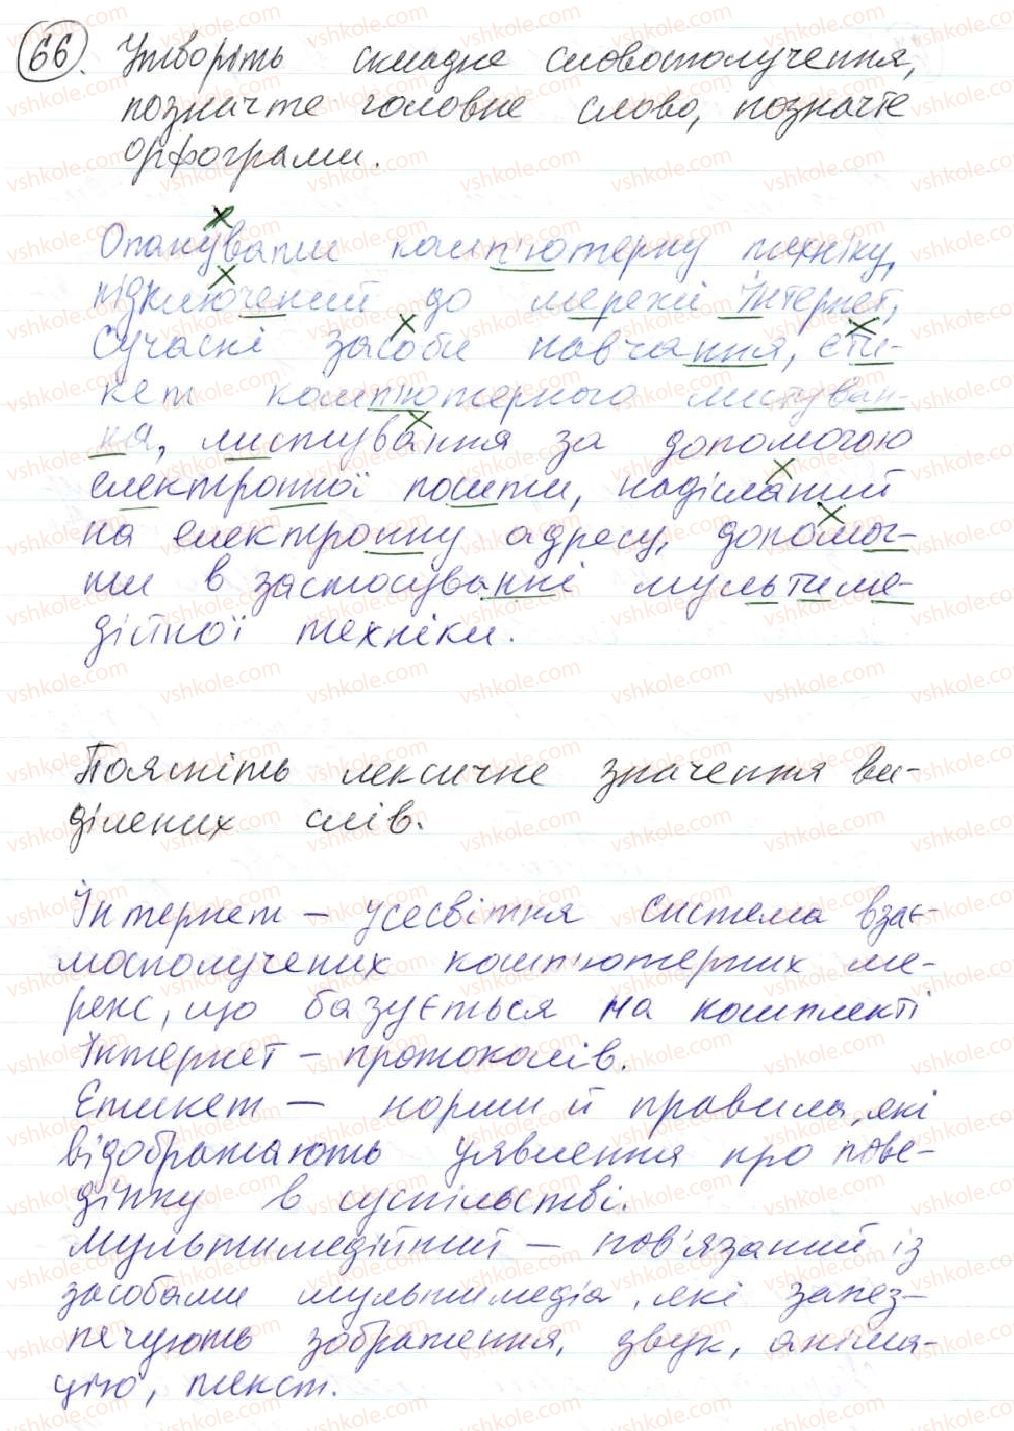 66. Утворіть складне словосполучення,
позначте головне слово, позначте
орфограми.
Опанувати комп'ютерну техніку,
підключений до мережі Інтернет,
сучасні засоби навчання, ети-
кет комп'ютерного листуван-
ня, листування за допомогою
електронної пошти, надісланий
на електронну адресу, допомог-
ти в застосуванні мультиме-
дійної техніки.
Поясніть лексичне значення ви-
ділених слів.
Інтернет – усесвітня система взає-
мосполучених комп'ютерних ме-
реж, що базується на комплекті
Інтернет – протоколів.
Етикет – норми й правила, які
відображають уявлення про пове-
дінку в суспільстві.
Мультимедійний – пов'язаний із
засобами мультимедіа, які забез-
печують зображення, звук, аніма-
цію, текст.